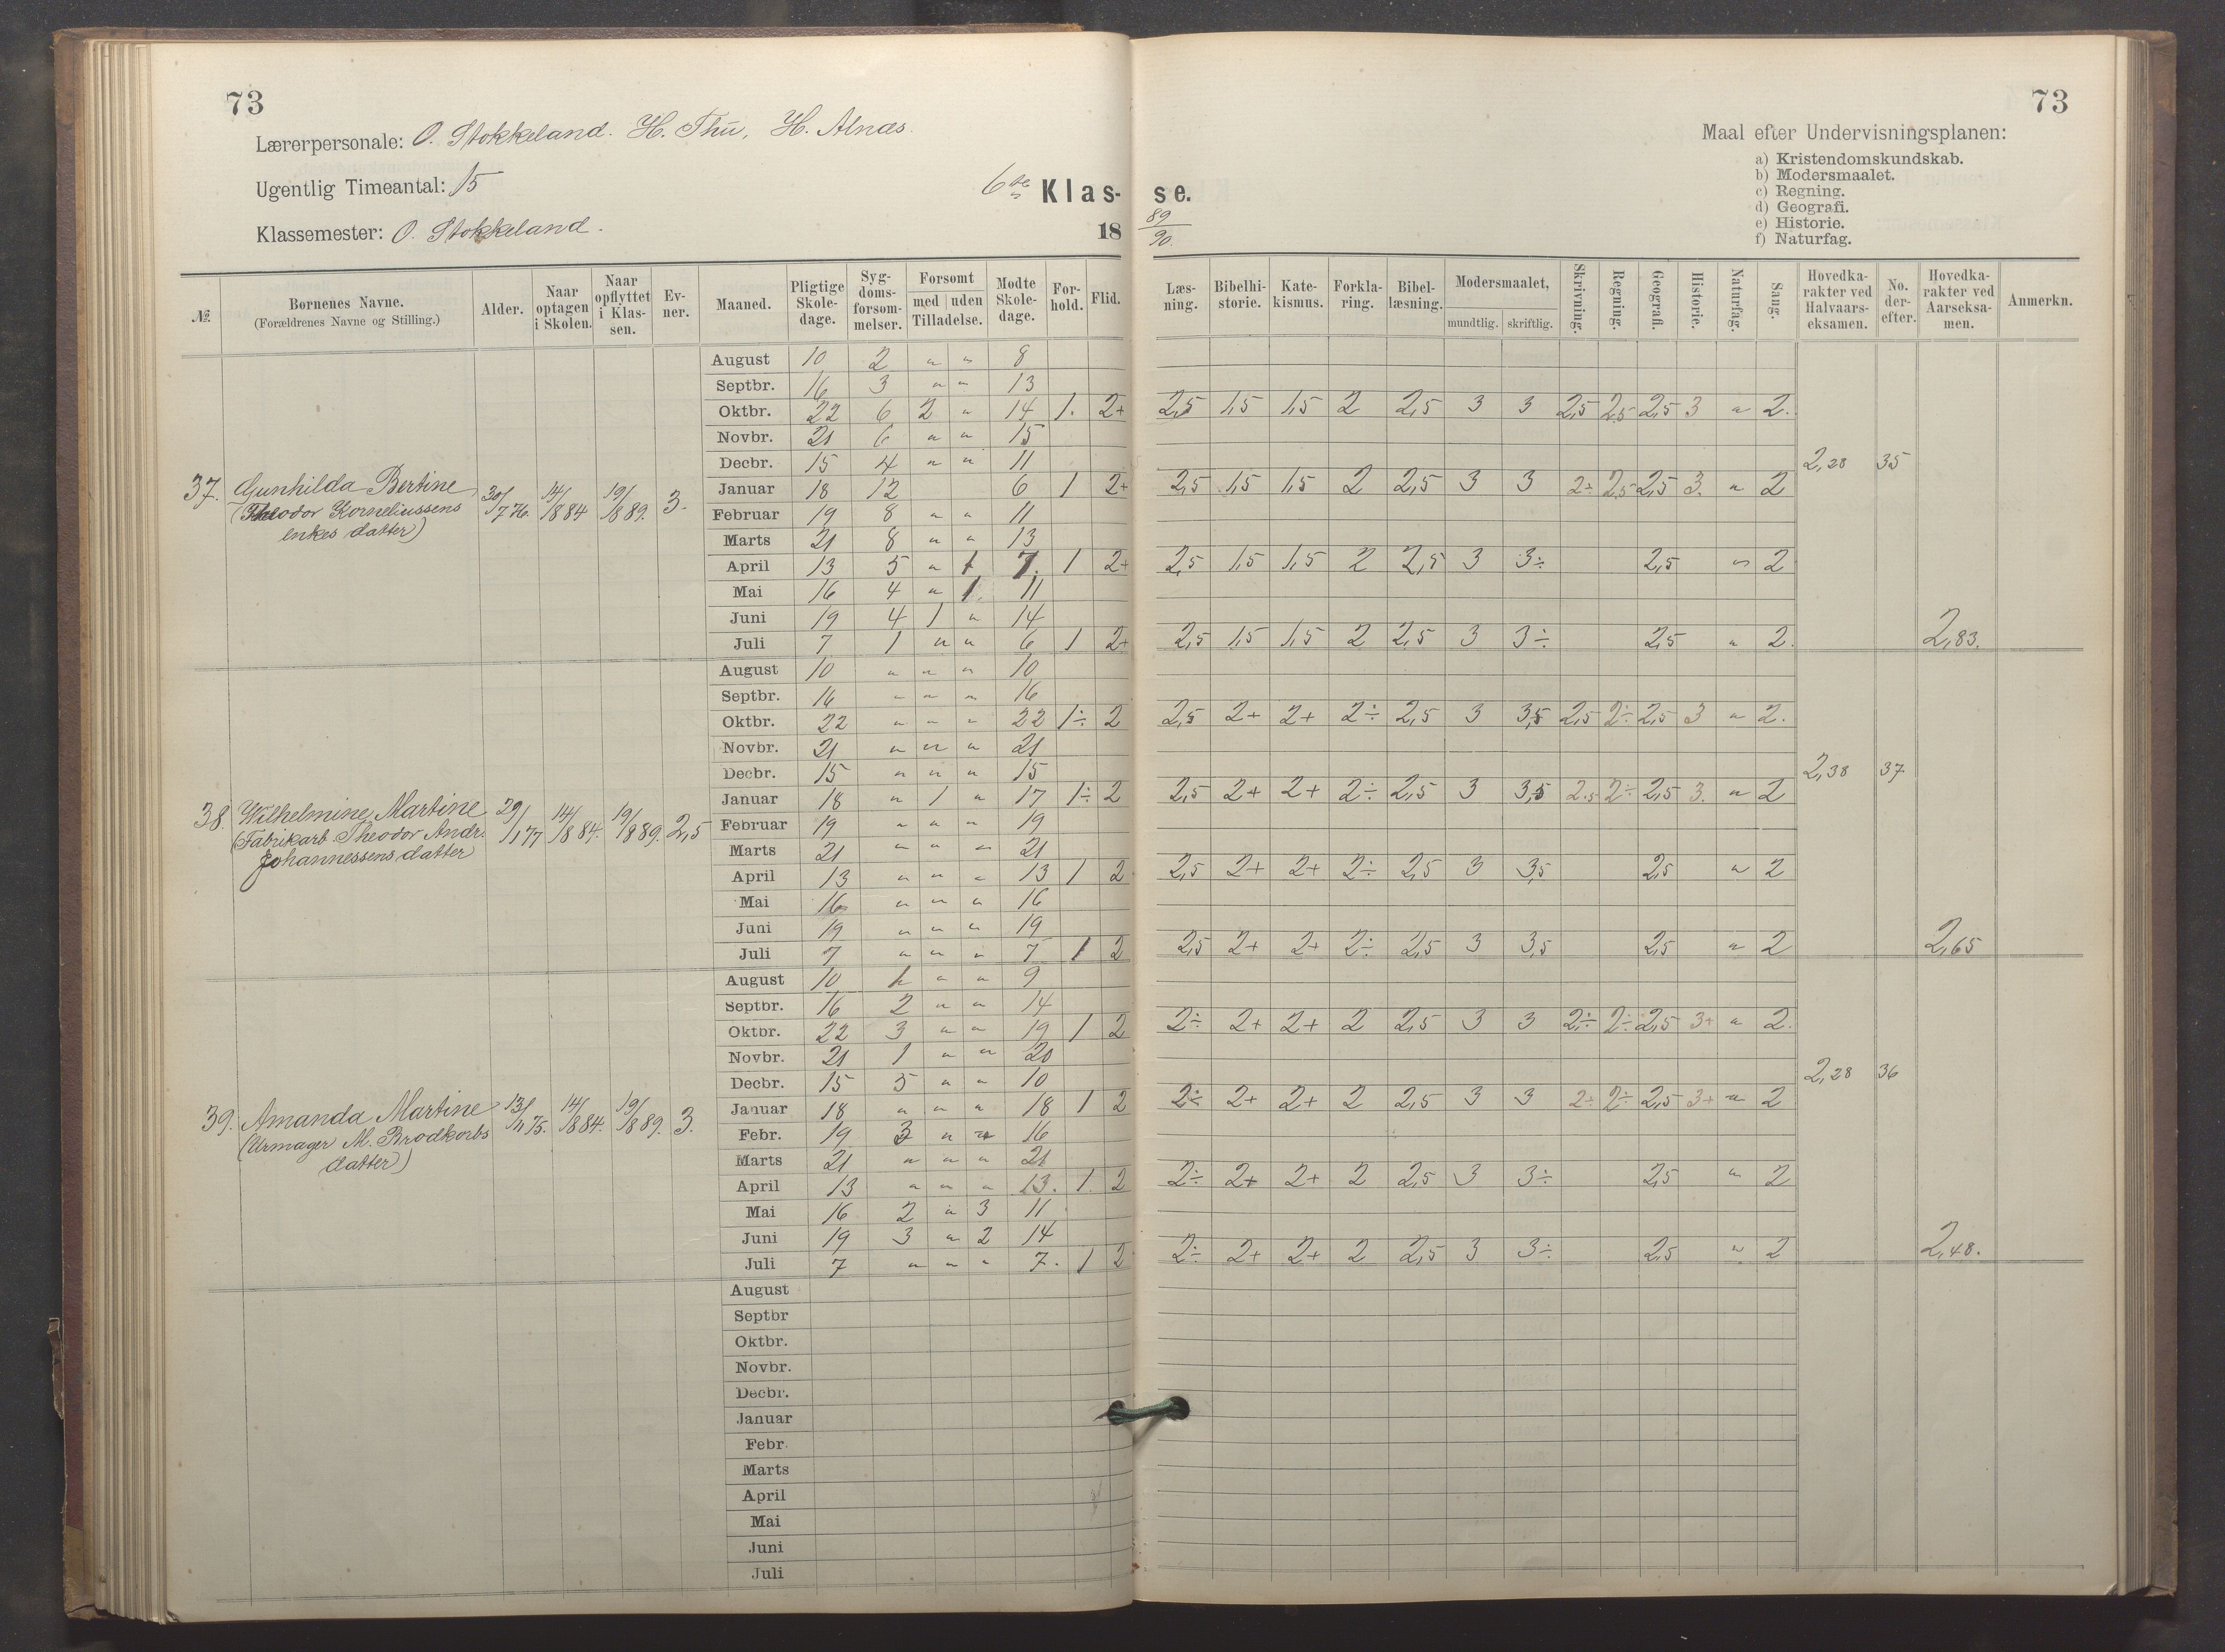 73
Lærerpersonale: O. Stokkeland. H. Thu, H. Alnæs.
Ugentlig Timeantal: 15
6te Klas-
Klassemester: O. Stokkeland.
18
№ Børnenes Navne. (Forældrenes Navne og Stilling.) Alder. Naar optagen i Skolen. Naar opflyttet i Klassen. Evner. Maaned. Pligtige Skoledage. Sygdomsforsømmelser. Forsømt med uden Tilladelse. Mødte Skoledage. Forhold. Flid.
37. Gunhilda Bertine (Theodor Korneliussens enkes datter) 30/7 76. 14/8 84 19/8 89. 3.
August 10 2 " " 8
Septbr. 16 3 " " 13
Oktbr. 22 6 2 " 14 1. 2+
Novbr. 21 6 " " 15
Decbr. 15 4 " " 11
Januar 18 12 6 1 2+
Februar 19 8 " " 11
Marts 21 8 " " 13
April 13 5 " 1 7. 1 2+
Mai 16 4 " 1. 11
Juni 19 4 1 " 14
Juli 7 1 " " 6 1 2+
38. Wilhelmine Martine (Fabrikarb. Theodor Andr. Johannessens datter) 29/1 77 14/8 84. 19/8 89. 2,5
August 10 " " " 10
Septbr. 16 " " " 16
Oktbr. 22 " " " 22 1÷ 2
Novbr. 21 " " " 21
Decbr. 15 " " " 15
Januar 18 " 1 " 17 1÷ 2
Februar 19 " " " 19
Marts 21 " " " 21
April 13 " " " 13 1 2
Mai 16 " " " 16
Juni 19 " " " 19
Juli 7 " " " 7 1 2
39. Amanda Martine (Urmager M. Brodkorbs datter) 13/11 75. 14/8 84. 19/8 89. 3.
August 10 1 " " 9
Septbr. 16 2 " " 14
Oktbr. 22 3 " " 19 1 2
Novbr. 21 1 " " 20
Decbr. 15 5 " " 10
Januar 18 " " " 18 1 2
Febr. 19 3 " " 16
Marts 21 " " " 21
April 13 " " " 13. 1. 2
Mai 16 2 " 3 11
Juni 19 3 " 2 14
Juli 7 " " " 7. 1 2
August
Septbr
Oktbr.
Novbr.
Decbr.
Januar
Febr.
Marts
April
Mai
Juni
Juli
73
Maal efter Undervisningsplanen:
a) Kristendomskundskab.
b) Modersmaalet.
c) Regning.
d) Geografi.
e) Historie.
f) Naturfag.
se.
89/90.
Læsning. Bibelhistorie. Katekismus. Forklaring. Bibellæsning. Modersmaalet, mundtlig. skriftlig. Skrivning. Regning. Geografi. Historie. Naturfag. Sang. Hovedkarakter ved Halvaarseksamen. No. derefter. Hovedkarakter ved Aarseksamen. Anmerkn.
2,5 1,5 1,5 2 2,5 3 3 2,5 2,5 2,5 3 " 2.
2,28 35
2,5 1,5 1,5 2 2,5 3 3 2÷ 2,5 2,5 3. " 2
2,5 1,5 1,5 2 2,5 3 3÷ 2,5 " 2
2,5 1,5 1,5 2 2,5 3 3÷ 2,5 " 2. 2,83.
2,5 2+ 2+ 2÷ 2,5 3 3,5 2,5 2÷ 2,5 3 " 2.
2,38 37
2,5 2+ 2+ 2÷ 2,5 3 3,5 2,5 2÷ 2,5 3. " 2
2,5 2+ 2+ 2÷ 2,5 3 3,5 2,5 " 2
2,5 2+ 2+ 2÷ 2,5 3 3,5 2,5 " 2 2,65
2÷ 2+ 2+ 2 2,5 3 3 2÷ 2÷ 2,5 3+ " 2.
2,28 36
2÷ 2+ 2+ 2 2,5 3 3 2÷ 2÷ 2,5 3+ " 2
2÷ 2+ 2+ 2 2,5 3 3÷ 2,5 " 2
2÷ 2+ 2+ 2 2,5 3 3÷ 2,5 " 2 2,48.